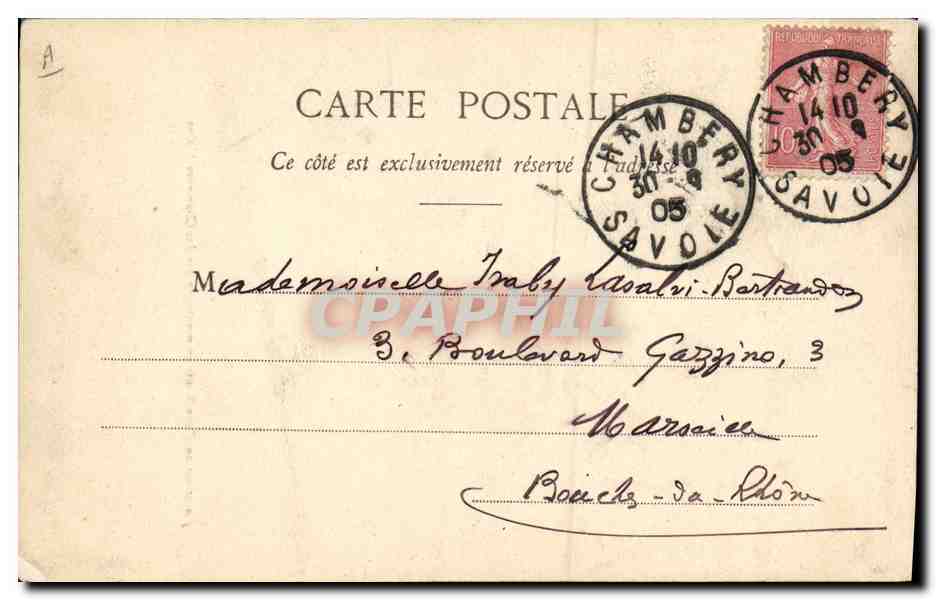 A
REPUBLIQUE FRANÇAISE
10
CARTE POSTALE
CHAMBERY
14 10
30 9
05
SAVOIE
CHAMBERY
14 10
30 9
05
SAVOIE
Ce côté est exclusivement réservé à l'adresse
Mademoiselle Lasalvi-Bertrandon
CPAPHIL
3, Boulevard Gazzino, 3
Marseille
Bouches-du-Rhône